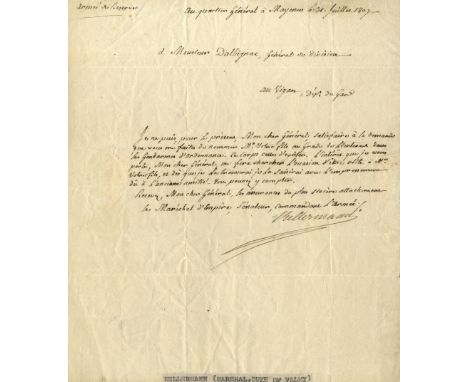 armée de Réserve
Au quartier Général à Mayence le 31 Juillet 1807
à Monsieur Dalbignac, Général de division
au Vigan, Dépt. du Gard
Je ne puis pour le présent, Mon cher Général, satisfaire à la demande
que vous me faites de nommer Mr. Votre fils au Grade de Lieutenant dans
les Gendarmes d'ordonnance. Ce Corps cesse d'exister. L'intérêt que je vous
porte, Mon cher Général, me fera chercher l'occasion d'être utile à Mr.
Votre fils, et dès que je la trouverai je la saisirai avec l'empressement
dû à l'ancienne amitié. Vous pouvez y compter.
Recevez, Mon cher Général, les assurances du plus sincère attachement
Le Maréchal d'Empire, Sénateur, commandant l'armée
Kellermann
KELLERMANN (MARSHAL, DUKE OF VALMY)